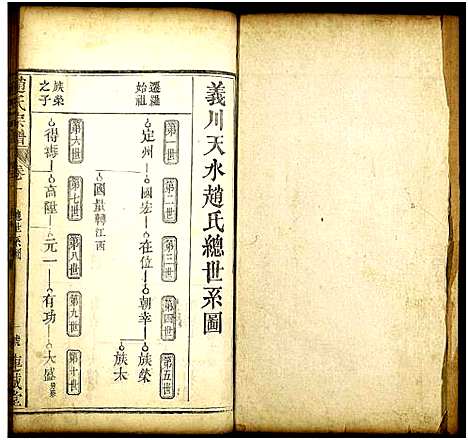 義川天水趙氏總世系圖
第一世 第二世 第三世 第四世 第五世
遷羅始祖
定州 國宏 在位 朝幸 族榮
族木
國量轉江西
第六世 第七世 第八世 第九世 第十世
族榮之子
得壽 高陞 元一 有功 大盛
趙氏宗譜 卷 總世系圖